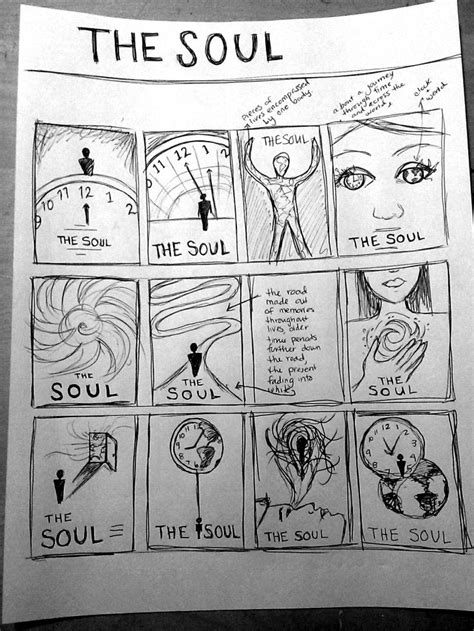 THE SOUL
pieces of
lives encompassed
by one body
about a journey
through time
and across the
world
clock
world
12
11
1
10
2
THE SOUL
11 12 1
THE SOUL
THE SOUL
THE SOUL
THE
SOUL
THE
SOUL
the road
made out
of memories
throughout
lives, older
time periods
further down
the road,
the present
fading into
white
THE
SOUL
THE
SOUL
THE SOUL
THE SOUL
THE SOUL